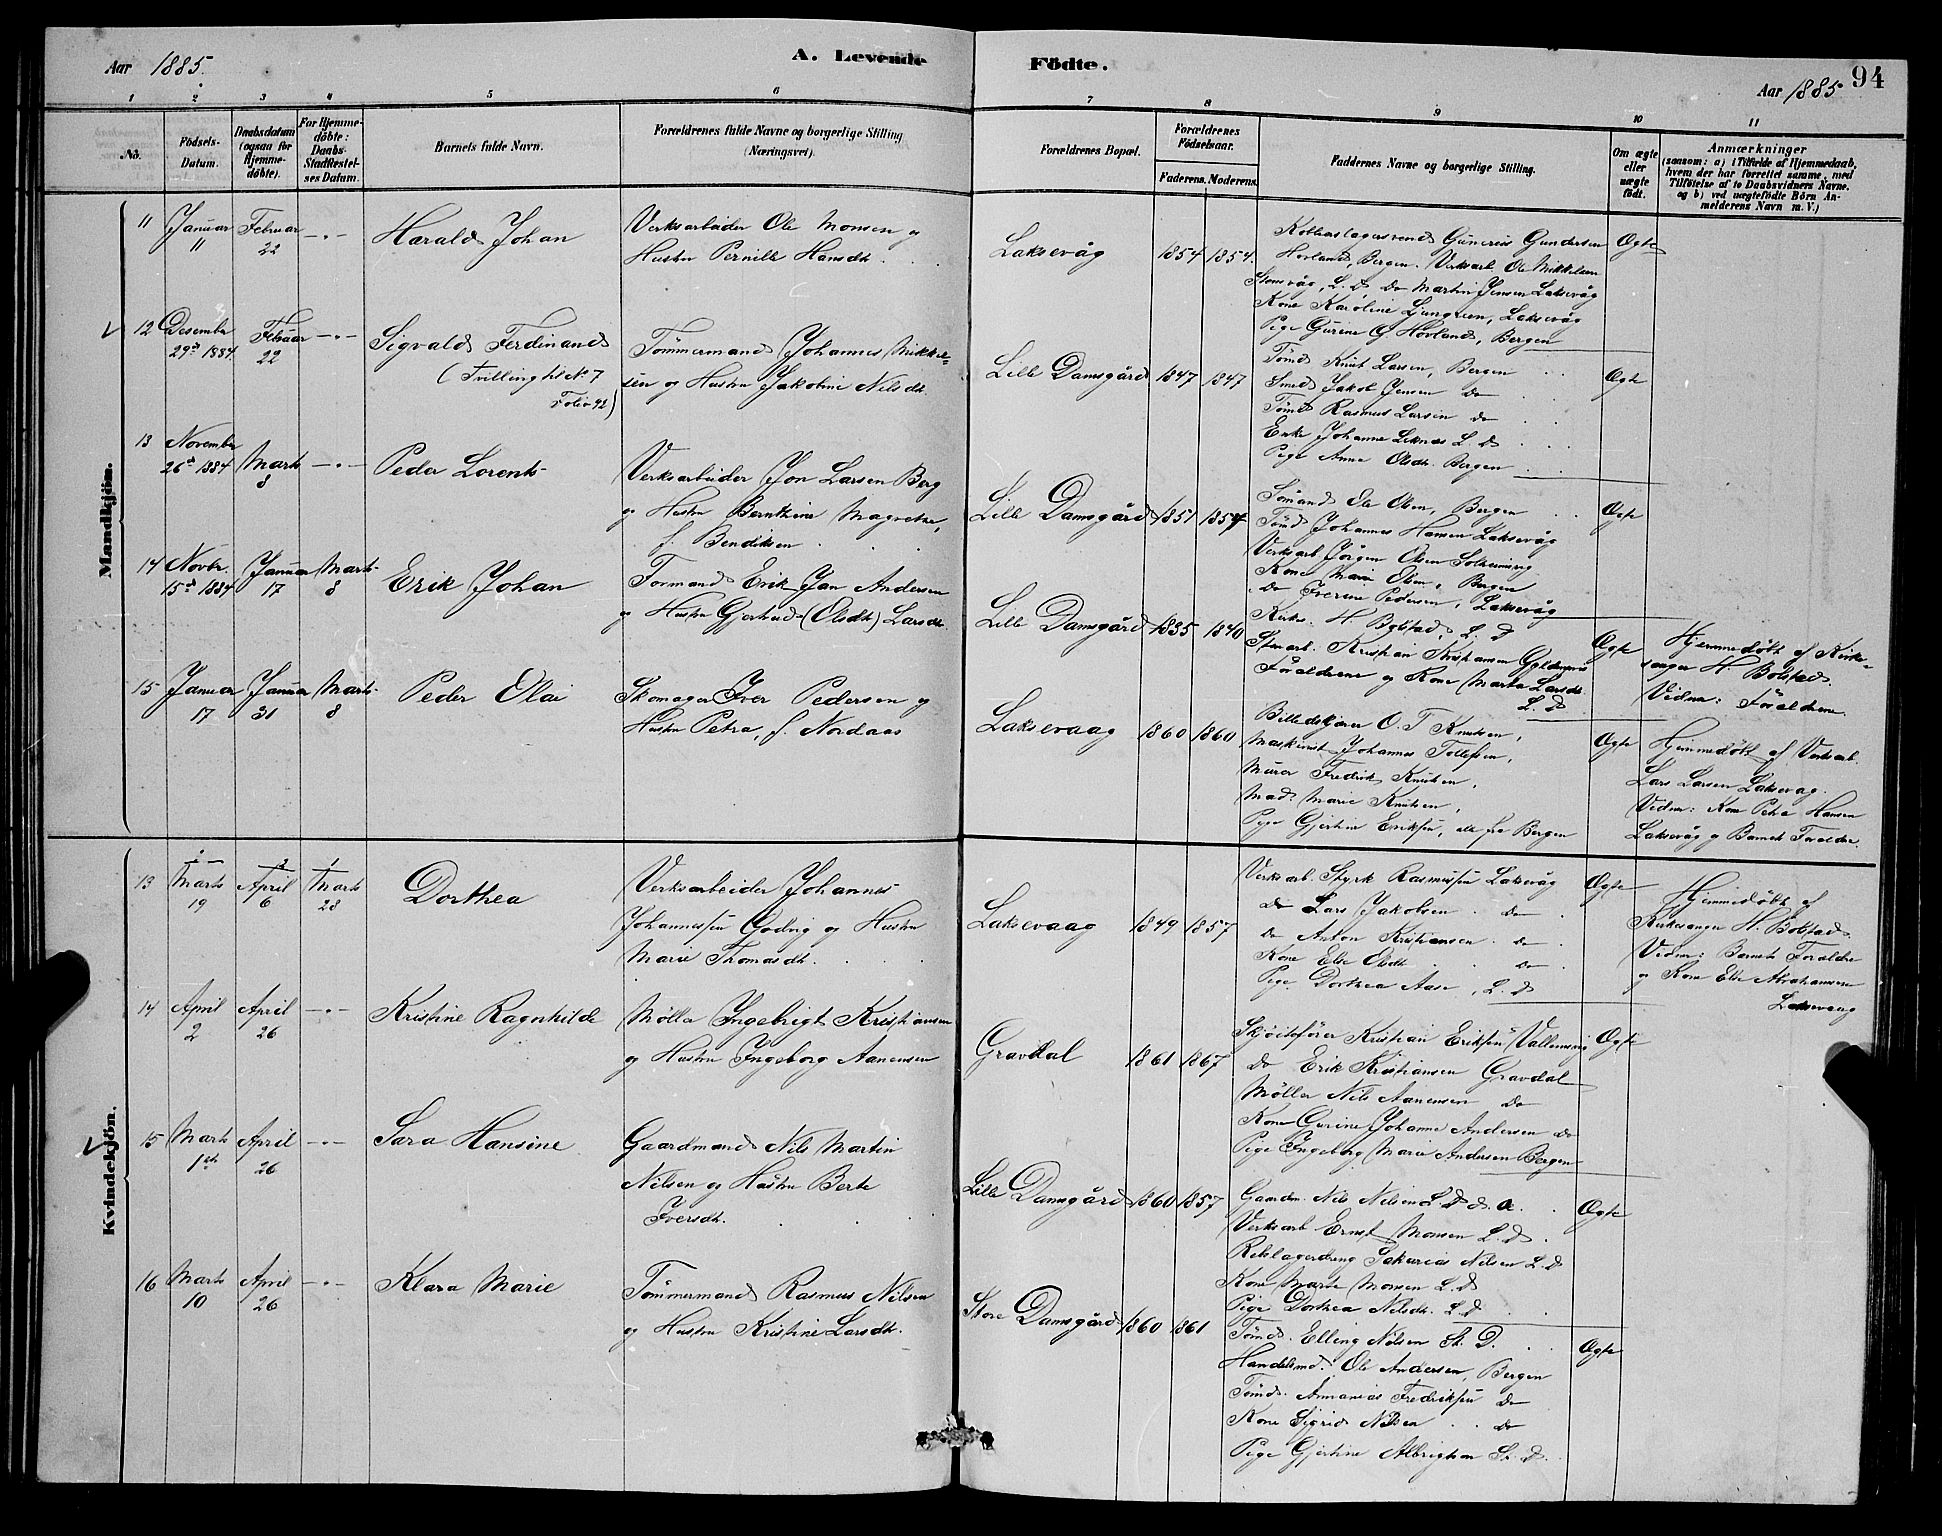 Aar 1885.
A. Levende
Födte.
Aar 1885
94
1 2 3 4 5 6 7 8 9 10 11
No.
Födsels-Datum.
Daabsdatum (ogsaa for Hjemme-döbte).
For Hjemme-döbte: Daabs-Stadfæstel-ses Datum.
Barnets fulde Navn.
Forældrenes fulde Navne og borgerlige Stilling (Næringsvei).
Forældrenes Bopæl.
Forældrenes Födselsaar.
Faderens. Moderens.
Faddernes Navne og borgerlige Stilling.
Om ægte eller uægte födt.
Anmærkninger
(saasom: a) i Tilfælde af Hjemmedaab,
hvem der har forrettet samme, med
Tilföielse af to Daabsvidners Navne.
og b) ved uægtefödte Börn An-
melderens Navn m. V.)
Mandkjön.
11 Januar 11 Februar 22 -"- Harald Johan
Verksarbeider Ole Monsen og
Hustru Pernille Hansdt.
Laksevåg 1854 1854.
Kobberslagersvend Gunerius Gundersen
Hovland, Bergen. Verksarb. Ole Mikkelsen
L. D. Do Martin Jensen Laksevåg
Kone Karoline Ljunggren, Laksevåg
Pige Gurine G. Hovland, Bergen
Ægte
12 Desember 29de 1884. Februar 22 -"- Sigvald Ferdinand
(Tvilling til No 7
Folio 92)
Tömmermand Johannes Mikkel-
sen og Hustru Jakobine Nilsdt.
Lille Damsgård 1847 1847
Tömd Knut Larsen, Bergen
Smed Jakob Jensen do
Tömd Rasmus Larsen do
Enke Johanne Leknes L. D.
Pige Anna Olsdt. Bergen
Ægte
13 November 26de 1884 Marts 8 -"- Peder Lorents
Verksarbeider Jon Larsen Berg
og Hustru Bernthine Magrethe,
f. Bendiksen
Lille Damsgård 1851 1854
Sömand Ole Olsen, Bergen
Tömd Johannes Hansen Laksevåg
Verksarb. Jörgen Olsen Solheimsvig
Kone Marie Olsen, Bergen
Do Iverine Pedersen, Laksevåg
Ægte
14 Novbr. 15de 1884 Januar 17 Marts 8 Erik Johan
Formand Erik Jan Andersen
og Hustru Gjertrud (Olsdt) Larsdt.
Lille Damsgård 1835 1840
Kirkes. H. Bolstad, L. D
Stenarb. Kristian Kristiansen
Forældrene og Kone Marta Larsdt.
L. D
Ægte
Hjemmedöbt af Kirke-
sanger H. Bolstad.
Vidner: Forældrene
15 Januar 17 Januar 31 Marts 8 Peder Olai
Skomager Iver Pedersen og
Hustru Petra, f. Nordaas
Laksevaag 1860 1860
Billedskjærer O. T. Knutsen,
Maskinist Johannes Tollefsen,
Murer Fredrik Knutsen,
Mad: Marie Knutsen,
Pige Gjertine Eriksen, alle fra Bergen
Ægte
Hjemmedöbt af Verksarb.
Lars Larsen Laksevåg.
Vidner: Kone Petra Hansen
Laksevåg og Barnets Forældre.
Kvindekjön.
13 Marts 19 April 6 Marts 28 Dorthea
Verksarbeider Johannes
Johannessen Godvig og Hustru
Marie Thomasdt.
Laksevaag 1849 1857
Verksarb. Styrk Rasmussen Laksevåg
Do Lars Jakobsen do
Do Anton Kristiansen do
Kone Else Olsdt. do
Pige Dorthea Aase, L. D
Ægte
Hjemmedöbt af
Kirkesanger H. Bolstad
Vidner: Barnets Forældre
og Kone Else Abrahamsen
Laksevaag
14 April 2 April 26 -"- Kristine Ragnhilde
Møller Ingebrigt Kristiansen
og Hustru Ingeborg Aanensen
Gravdal 1861 1867
Skjöitefører Kristian Eriksen
Do Erik Kristiansen Gravdal
Møller Nils Aanensen do
Kone Gurine Johanne Andersen do
Pige Ingeborg Marie Andersen Bergen
Ægte
15 Marts 1ste April 26 -"- Sara Hansine
Gaardmand Nils Martin
Nilsen og Hustru Berte
Iversdt.
Lille Damsgård 1860 1857
Gaardm. Nils Nilsen L. D.
Verksarb. Ernst Monsen L. D.
Rebslagerdreng Sakarias Nilsen L. D
Kone Marte Monsen L. D
Pige Dorthea Nilsdt. L. D
Ægte
16 Marts 10 April 26 -"- Klara Marie
Tömmermand Rasmus Nilsen
og Hustru Kristine Larsdt.
Store Damsgård 1860 1861
Tömd. Elling Nilsen St. D.
Handelsmd. Ole Andersen, Bergen
Tömd. Annanias Fredriksen do
Kone Sigrid Nilsen do
Pige Gjertine Albrigtsen St. D.
Ægte